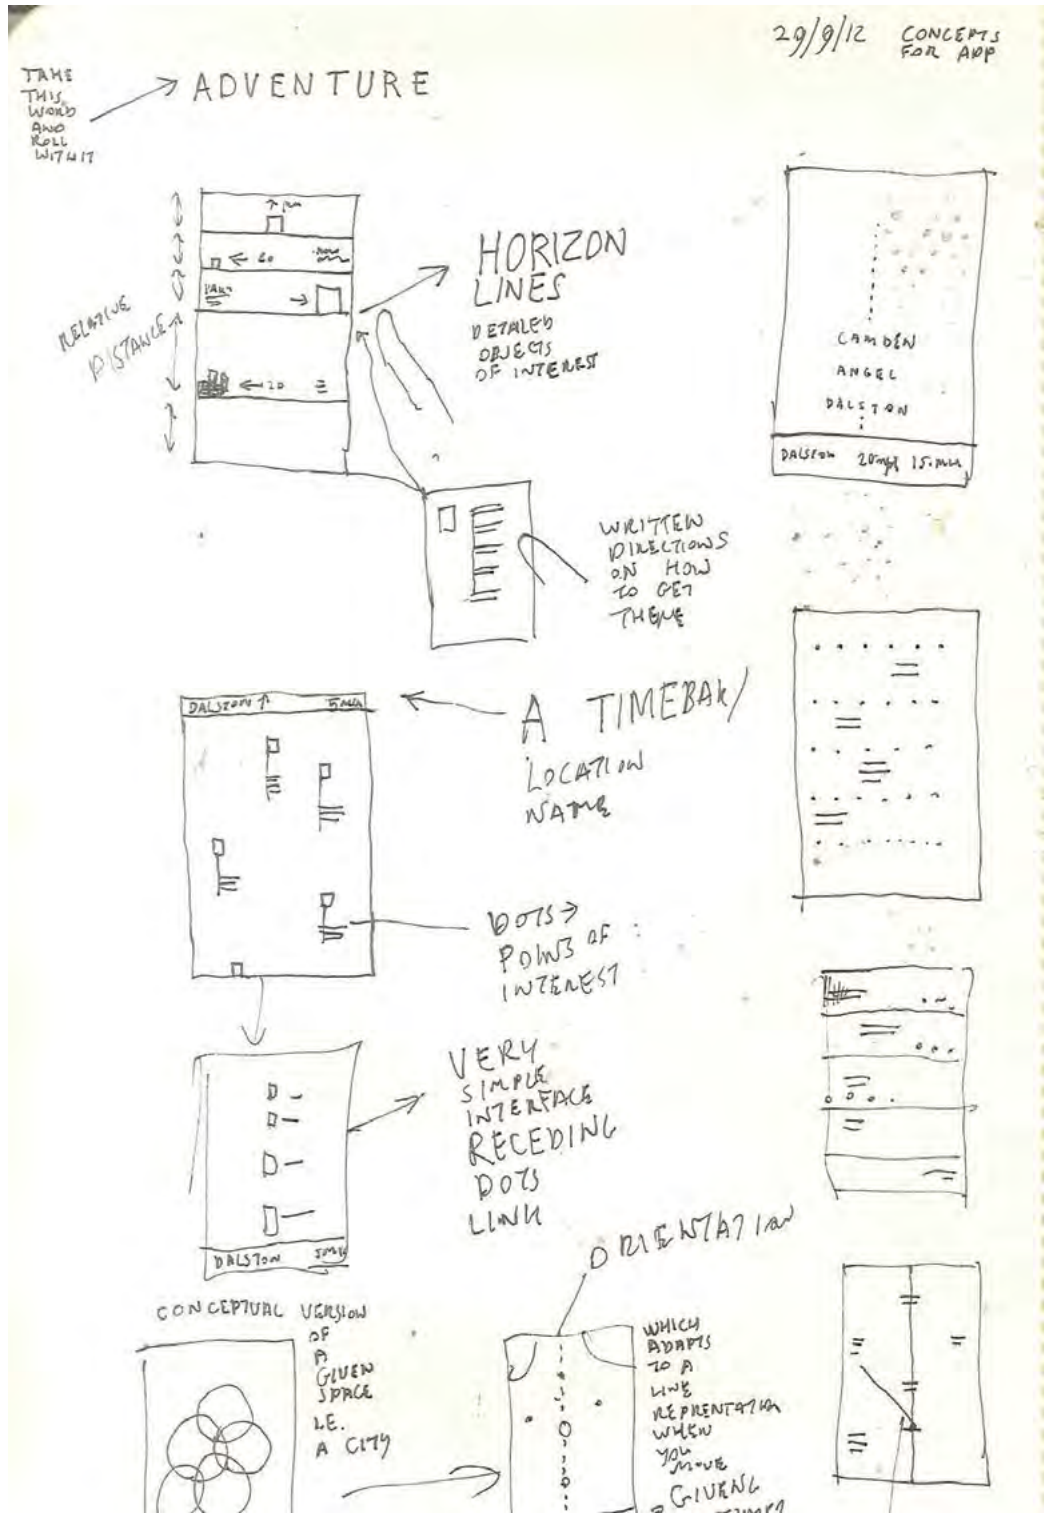 29/9/12 CONCEPTS
FOR APP
TAKE
THIS
WORD
AND
ROLL
WITH IT
ADVENTURE
← 60
← 20
RELATIVE
DISTANCE
HORIZON
LINES
DETALED
OBJECTS
OF INTEREST
CAMDEN
ANGEL
DALSTON
DALSTON 20mph 15.MIN
WRITTEN
DIRECTIONS
ON HOW
TO GET
THERE
DALSTON ↑ 5MIN
A TIMEBAR/
LOCATION
NAME
DOTS →
POINTS OF
INTEREST
VERY
SIMPLE
INTERFACE
RECEDING
DOTS
LINK
DALSTON 5MIN
ORIENTATION
CONCEPTUAL VERSION
OF
A
GIVEN
SPACE
I.E.
A CITY
WHICH
ADAPTS
TO A
LINE
REPRENTATION
WHEN
YOU
MOVE
GIVENG